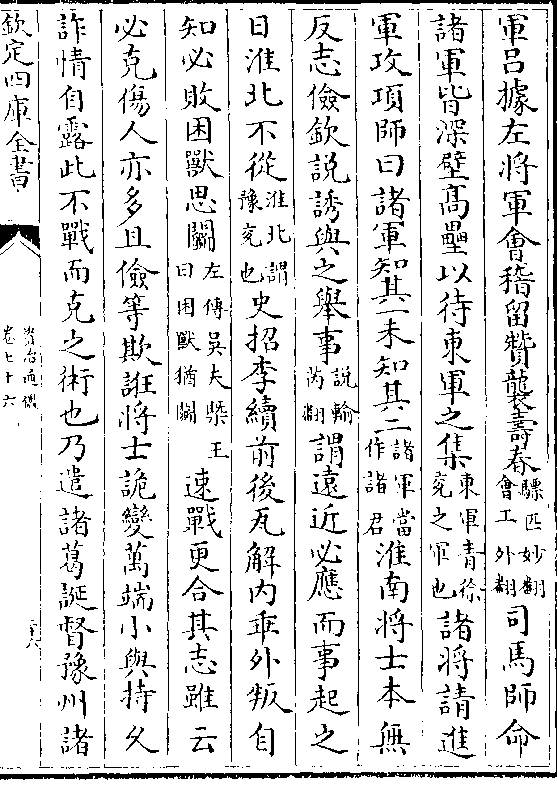 軍吕據左將軍會稽留贊襲壽春驃匹妙翻會工外翻司馬師命
諸軍皆深壁髙壘以待東軍之集東軍青徐兖之軍也諸將請進
軍攻項師曰諸軍知其一未知其二諸軍當作諸君淮南將士本無
反志儉欽說誘與之舉事說輸芮翻謂逺近必應而事起之
日淮北不從淮北謂豫兖也史招李續前後瓦解内乖外叛自
知必敗困獸思鬭左傳吳夫㮣王曰困獸猶鬭速戰更合其志雖云
必克傷人亦多且儉等欺誑將士詭變萬端小與持久
詐情自露此不戰而克之術也乃遣諸葛誕督豫州諸
欽定四庫全書
資治通鑑
卷七十六